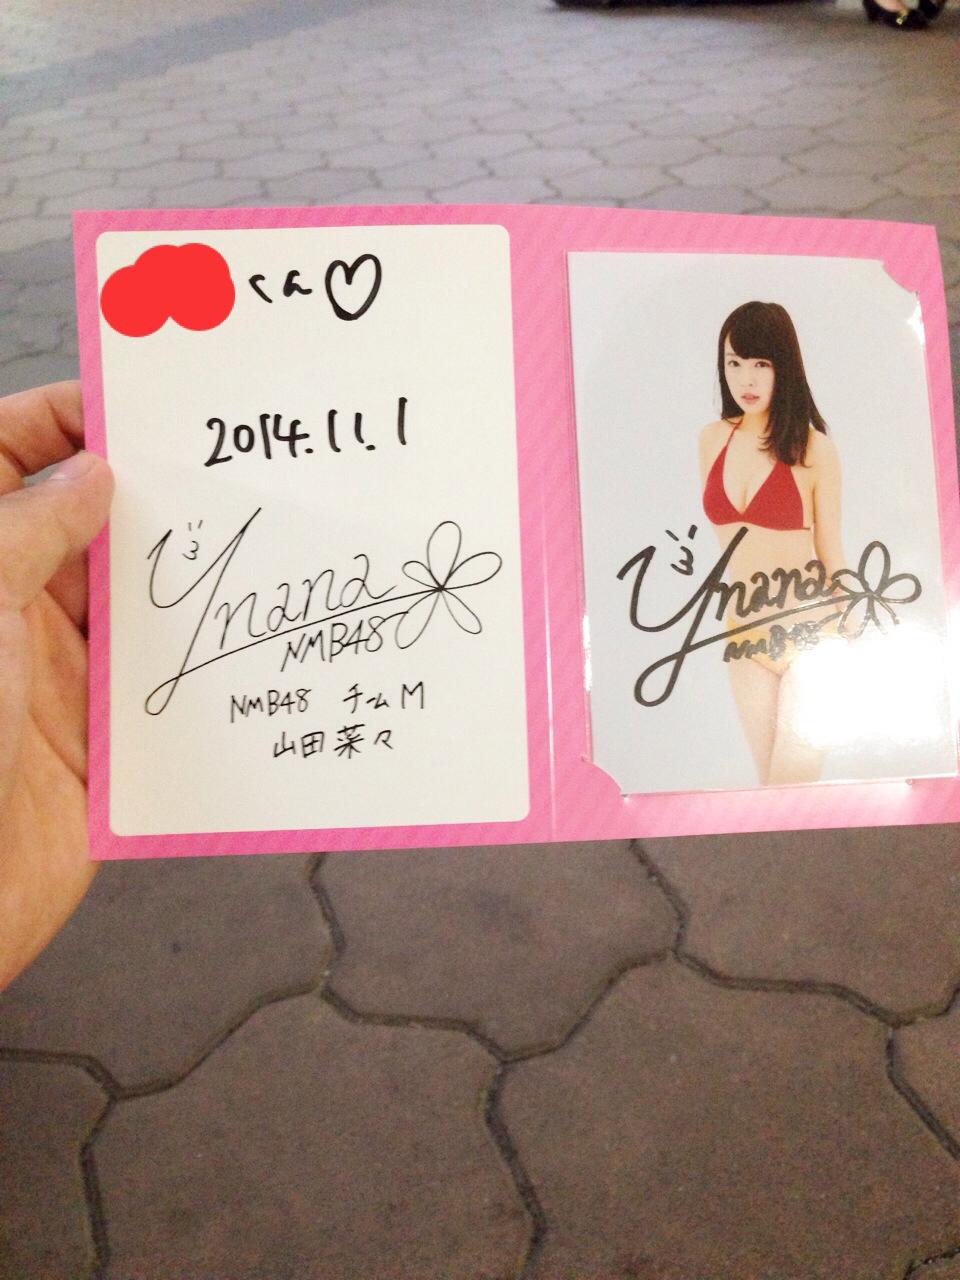 くん♡
2014.11.1
Ynana
NMB48
NMB48 チームM
山田菜々
Ynana
NMB48